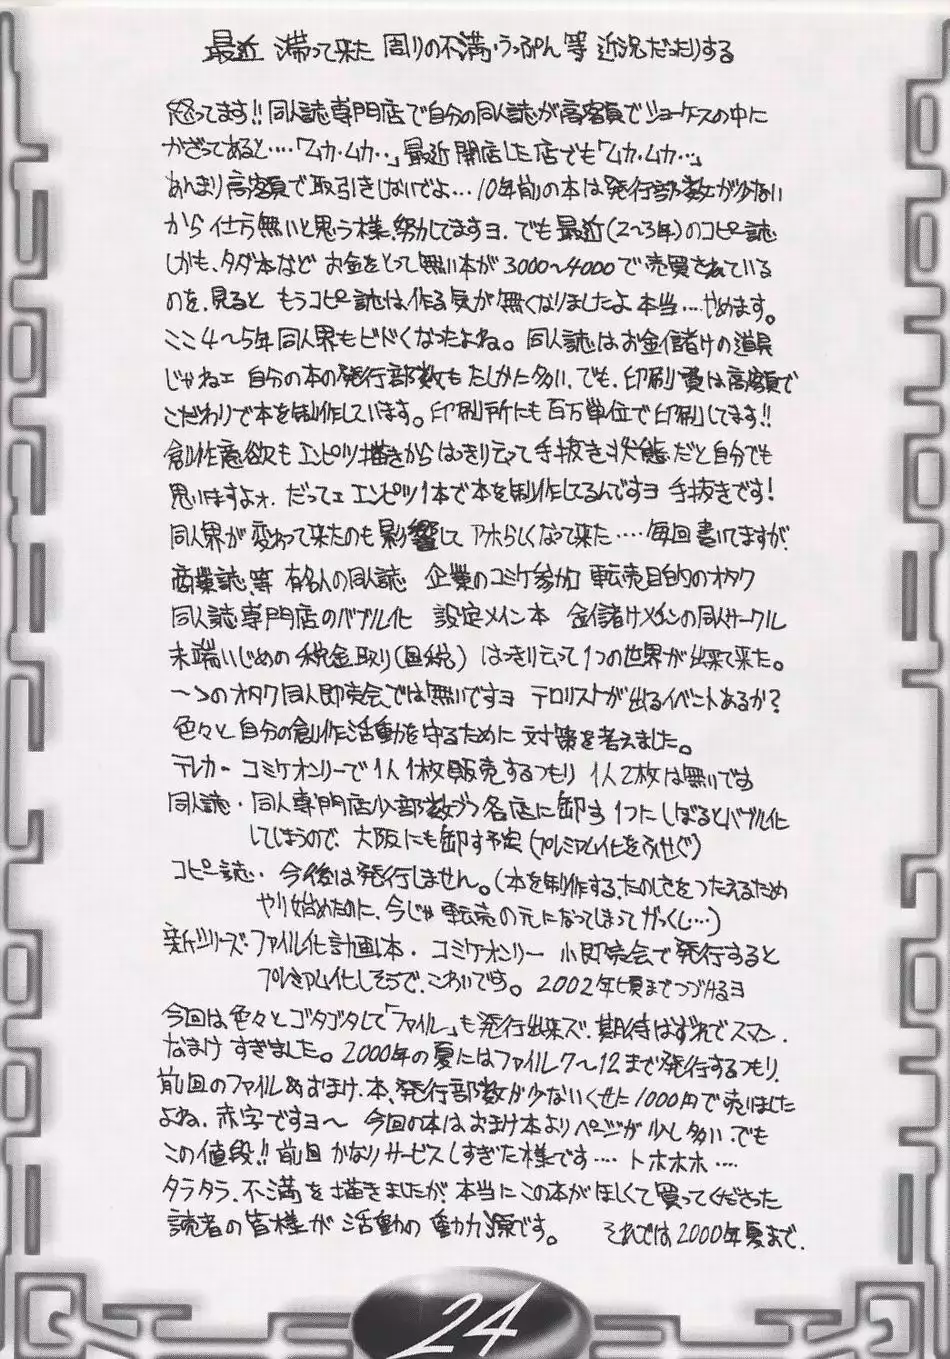 最近 滞って来た 周りの不満・うっぷん等 近況だったりする
怒ってます!! 同人誌専門店で自分の同人誌が高額でショーケースの中に
かざってあると‥‥「ムカ・ムカ‥」最近開店した店でも「ムカ・ムカ‥」
あんまり高額で取引きしないでよ‥‥10年前の本は発行部数が少ない
から仕方無いと思う様、努力してますヨ. でも最近(2〜3年)のコピー誌
しかも、タダ本など お金をとって無い本が3000〜4000で売買されている
のを、見ると もうコピー誌は、作る気が無くなりましたよ本当‥‥やめます。
ここ4〜5年同人界もヒドくなったよね。同人誌はお金儲けの道具
じゃねェ 自分の本の発行部数もたしかに多い、でも、印刷費は高額で
こだわりで本を制作しています。印刷所にも百万単位で印刷してます!!
創作意欲もエンピツ描きからはっきり云って手抜き状態だと自分でも
思いますよォ. だってェ エンピツ1本で本を制作してるんですヨ 手抜きです!
同人界が変わって来たのも影響して アホらしくなって来た‥‥毎回書いてますが、
商業誌、等 有名人の同人誌 企業のコミケ参加 転売目的のオタク
同人誌専門店のバブル化 設定メイン本 金儲けメインの同人サークル
末端いじめの税金取り(国税) はっきり云って1つの世界が出来て来た。
一つのオタク同人即売会では無いですヨ テロリストが出るイベントあるか?
色々と自分の創作活動を守るために対策を考えました。
テレカー コミケオンリーで1人1枚販売するつもり 1人2枚は無いです
同人誌・同人専門店少部数づつ各店に卸す 1つにしぼるとバブル化
してしまうので、大阪にも卸す予定(プレミアム化をふせぐ)
コピー誌・今後は発行しません。(本を制作する、たのしさをつたえるため
やり始めたのに、今じゃ転売の元になってしまってがっくし‥‥)
新シリーズ・ファイル化計画本・コミケオンリー 小即売会で発行すると
プレミアム化しそうで、こわいです。2002年頃までつづけるヨ
今回は色々とゴタゴタして「ファイル」も発行出来ズ、期待はずれでスマン.
なまけすぎました。2000年の夏にはファイル7〜12まで発行するつもり、
前回のファイル6おまけ、本、発行部数が少ないくせに1000円で売りました
よね、赤字ですヨ〜 今回の本はおまけ本よりページが少し多い、でも
この値段!! 前回かなりサービスしすぎた様です‥‥トホホホ‥‥
タラタラ、不満を描きましたが、本当にこの本がほしくて買ってくださった
読者の皆様が活動の動力源です。 それでは2000年夏まで.
24